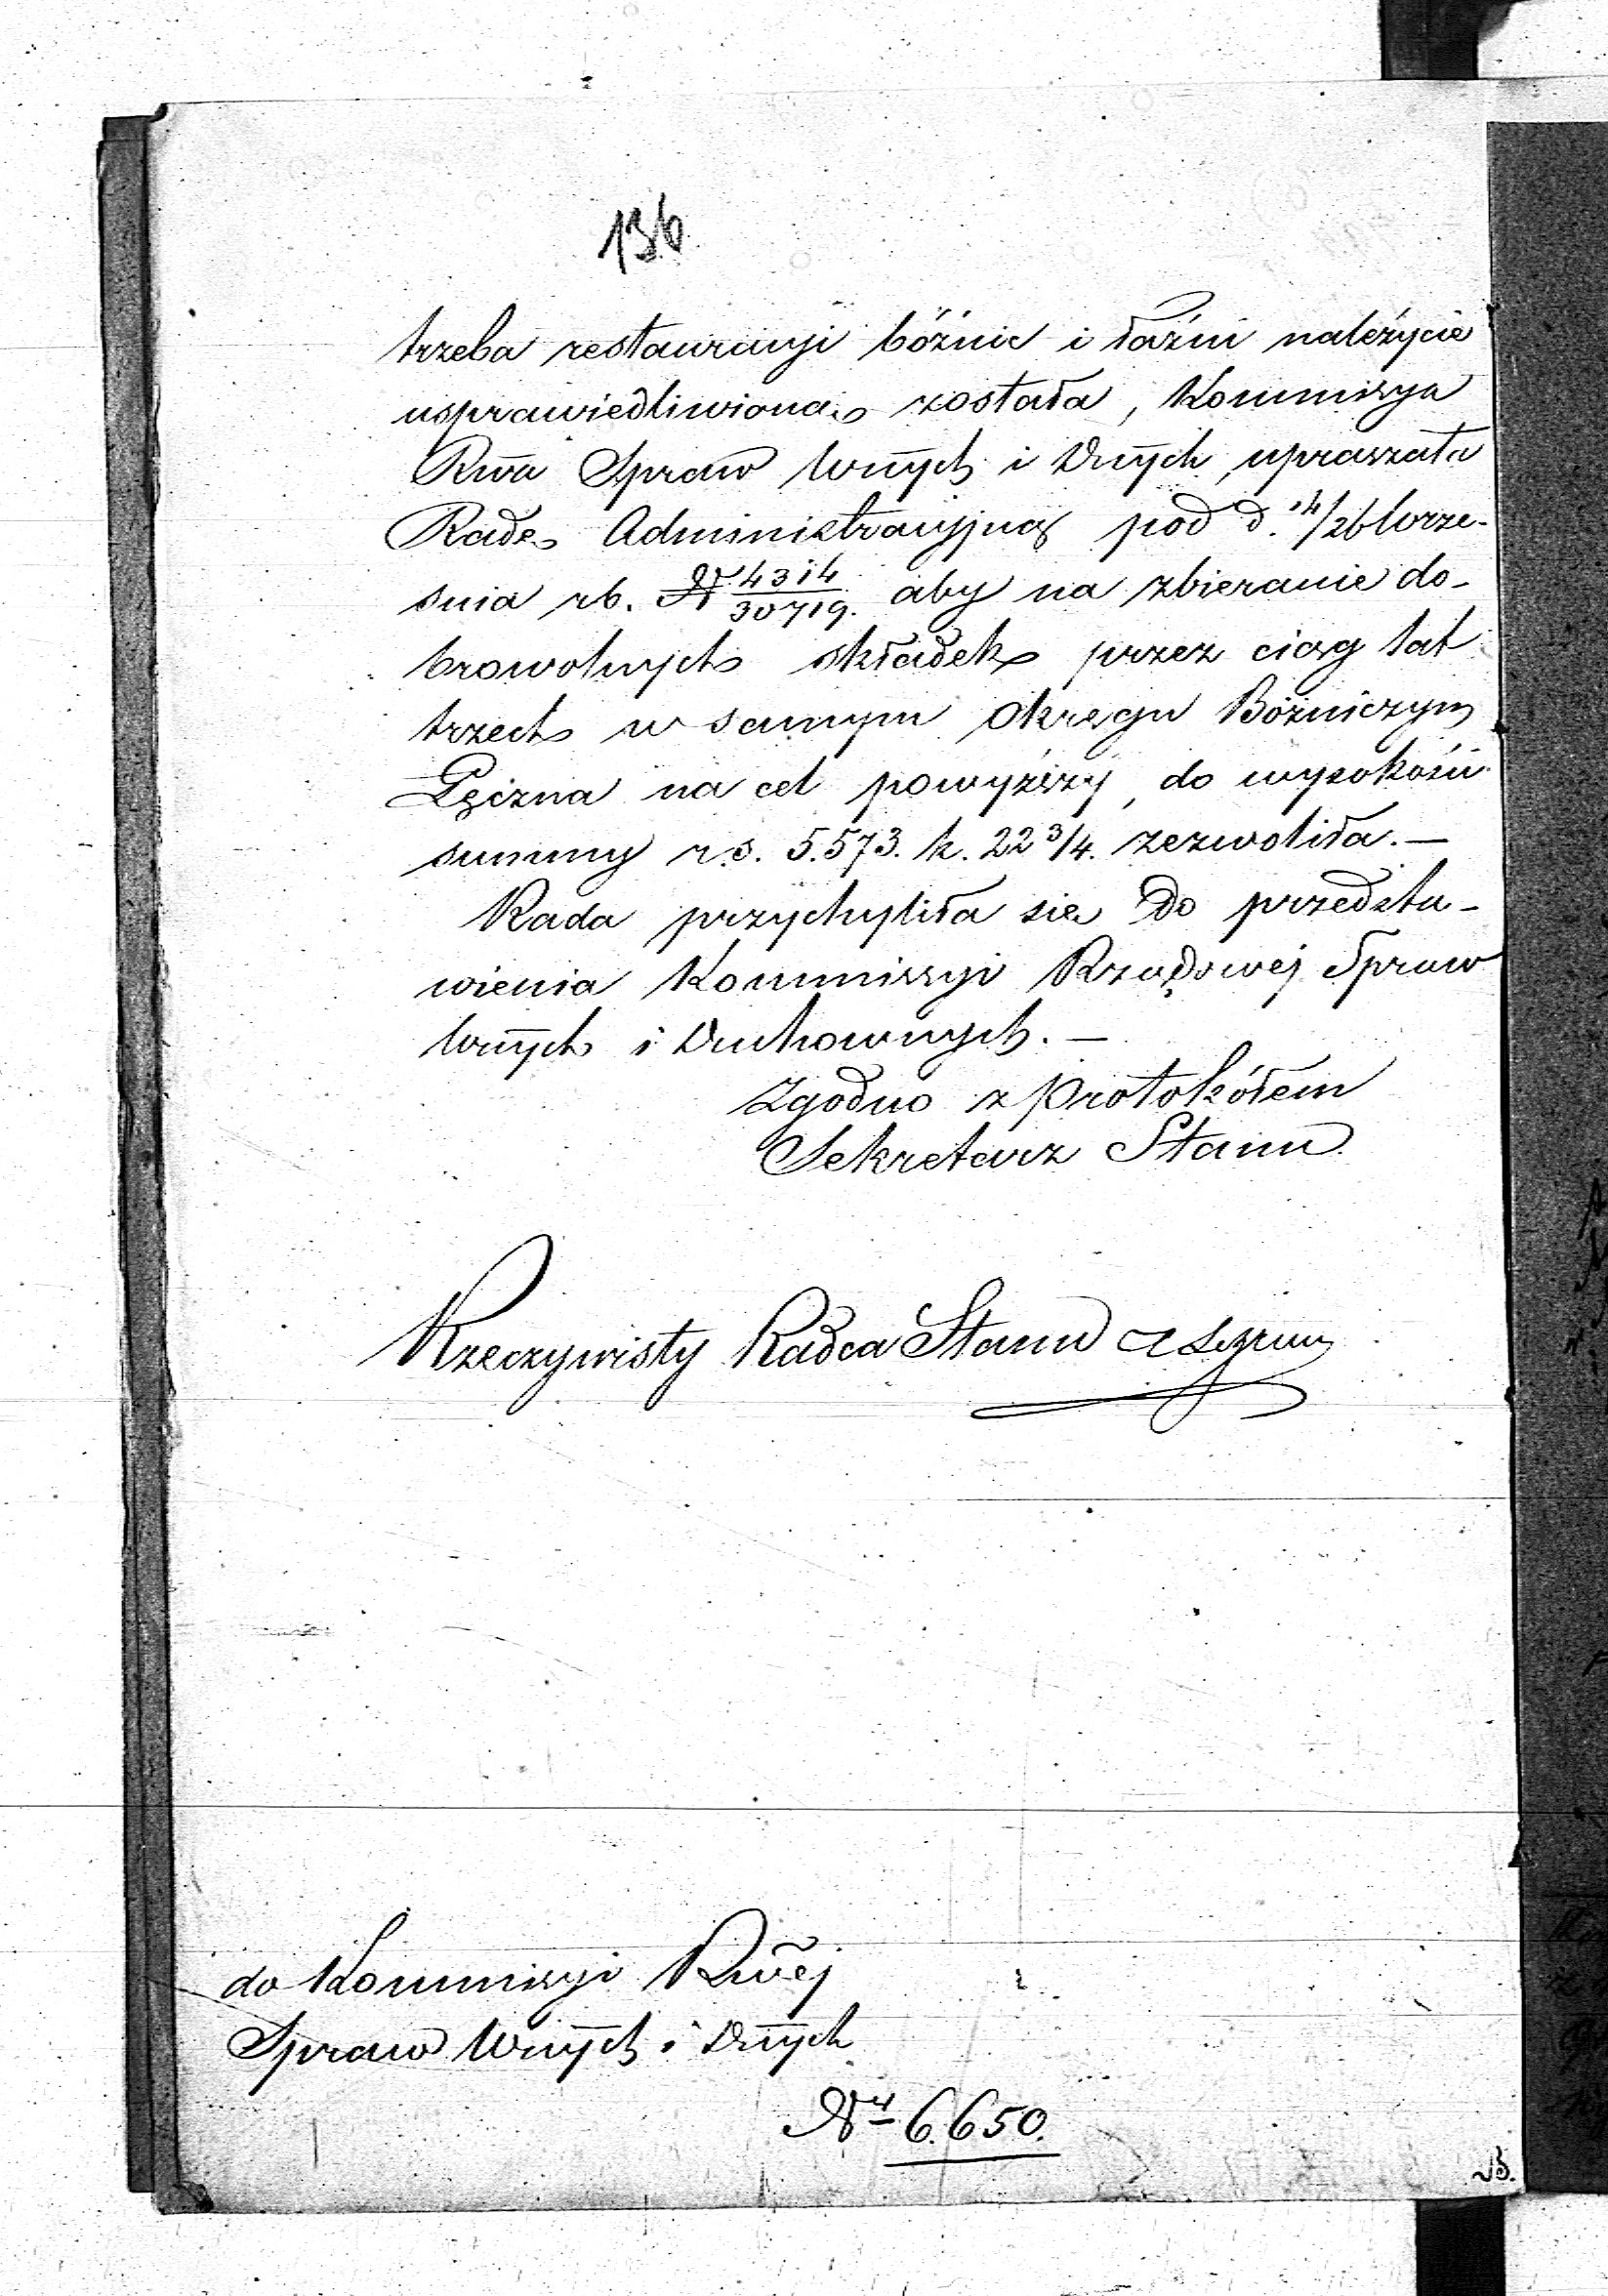 136
trzeba restauracyi bóźnic i łaźni należycie
usprawiedliwioną została, Kommissya
Rwa Spraw Wnych i Dnych, upraszała
Radę Administracyjną pod d. 14/26 Wrze-
śnia rb. N 4314/30719. aby na zbieranie do-
browolnych składek przez ciąg lat
trzech w samym Okręgu Bóżniczym
Łęczna na cel powyższy, do wysokości
summy r.s. 5.573. k. 22 3/4. zezwoliła. —
Rada przychyliła się do przedsta-
wienia Kommissyi Rządowej Spraw
Wnych i Duchownych. —
Zgodno z Protokółem
Sekretarz Stanu
Rzeczywisty Radca Stanu
do Kommissyi Rwej
Spraw Wnych i Dnych
Nr 6.650.